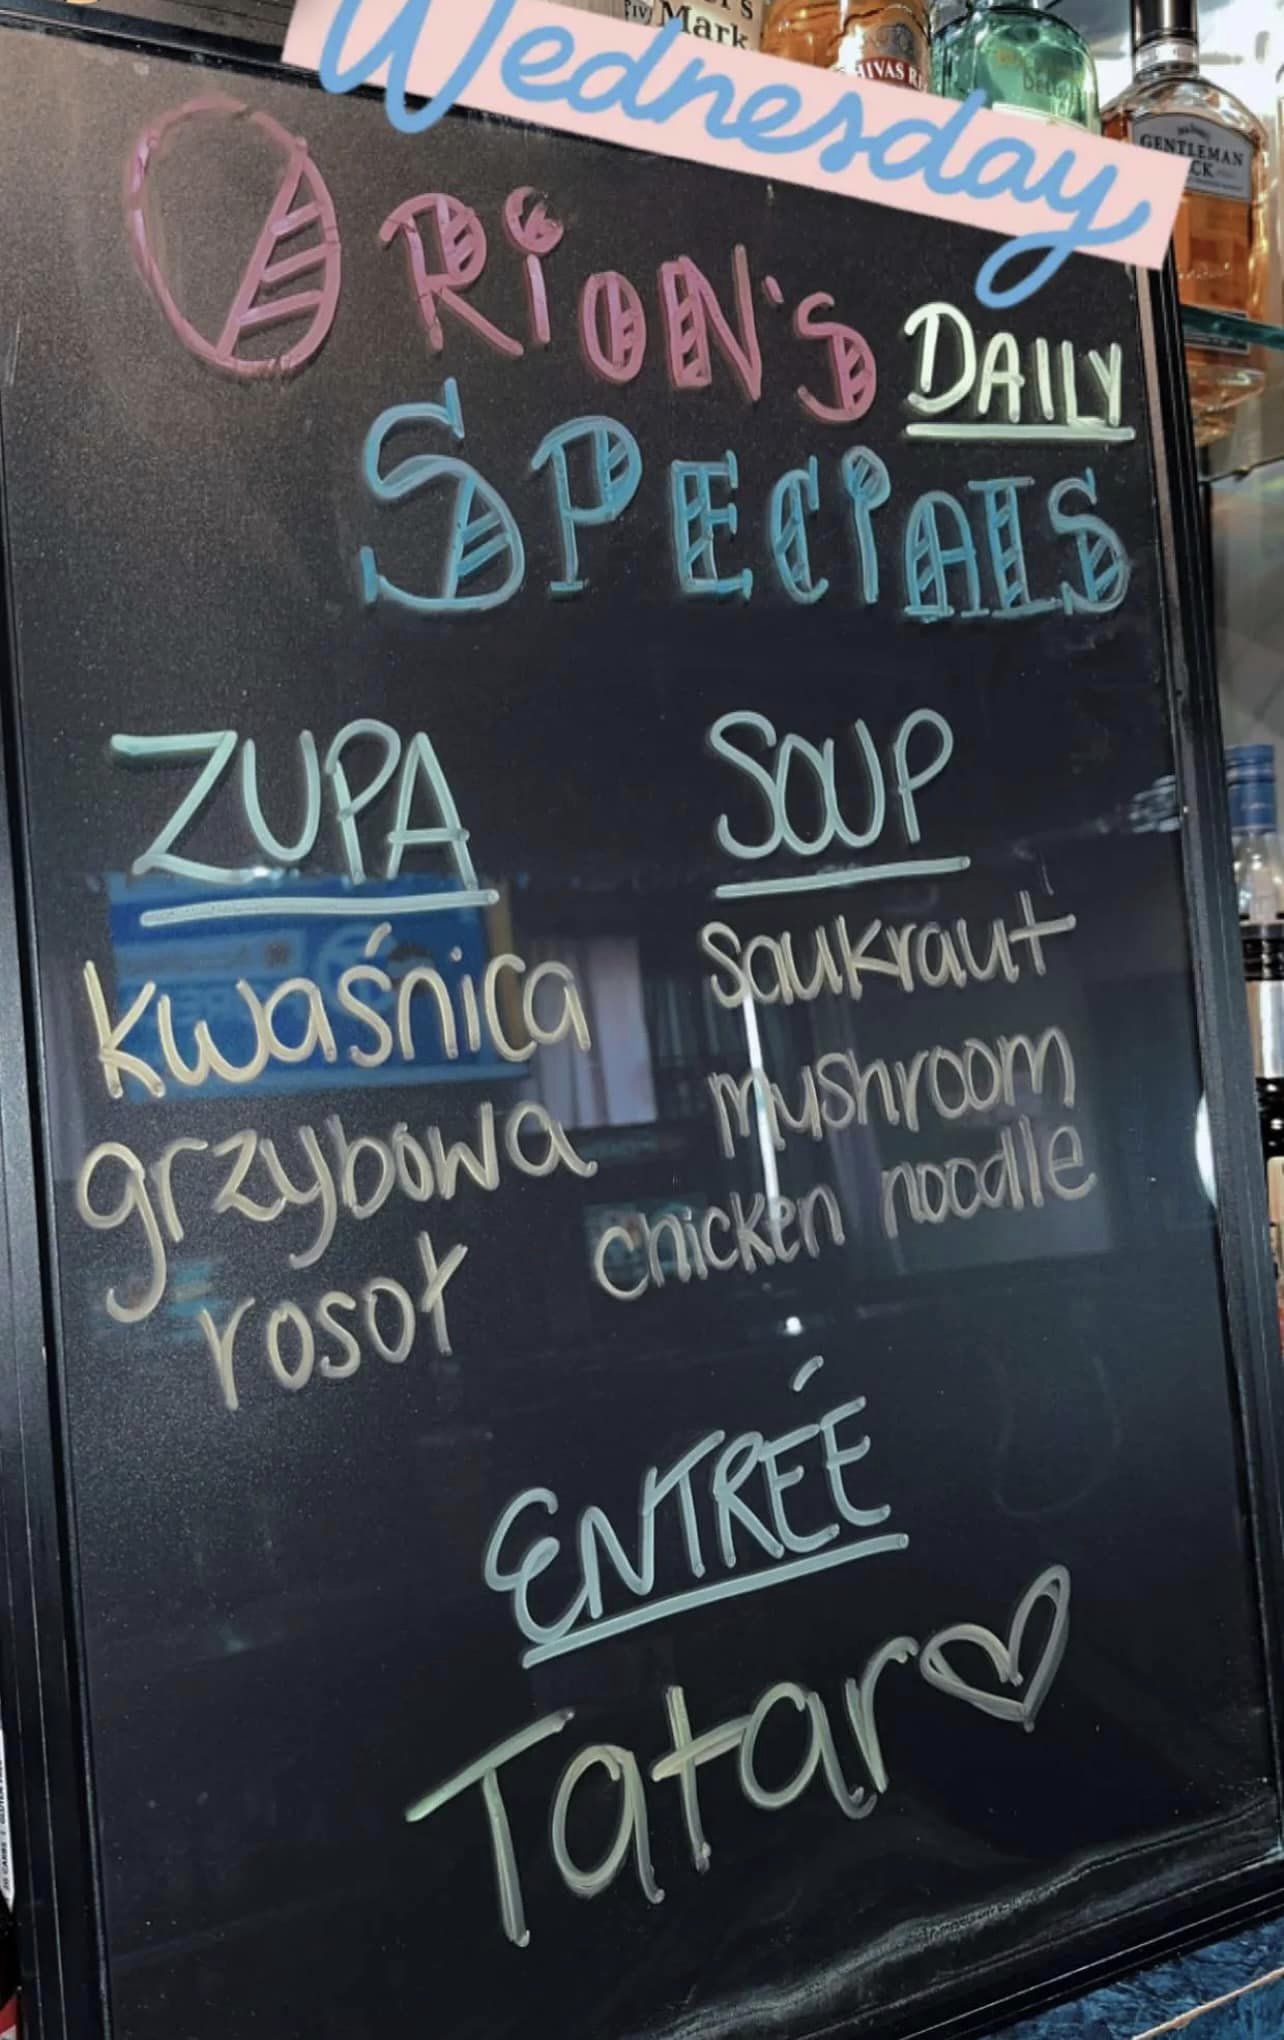 Mark
Wednesday
CHIVAS R
GENTLEMAN
CK
ORiON'S DAILY
SPECiAlS
ZUPA
kwaśnica
grzybowa
rosoł
SOUP
Saukraut
mushroom
chicken noodle
ENTRÉE
Tatar